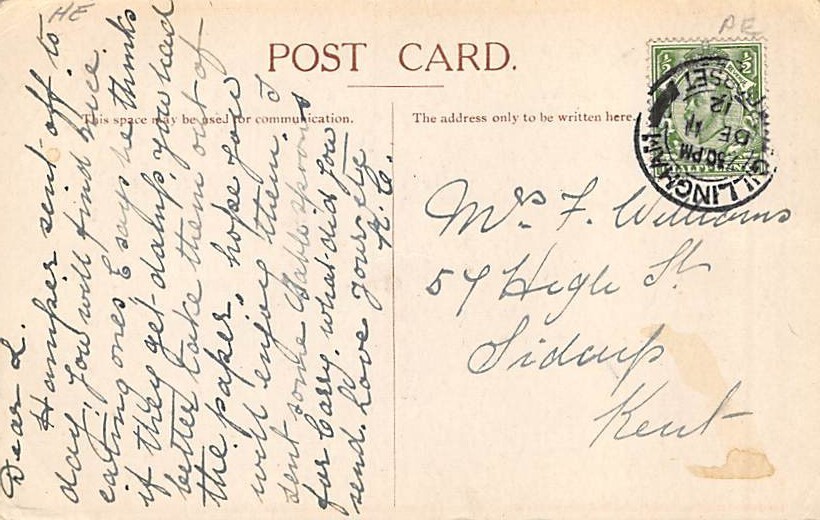 HE
BE
POST CARD.
This space may be used for communication.
The address only to be written here.
½ ½
GILLINGHAM
DORSET
7.30 PM
DE 11
12
Dear L.
Hamper sent off to
day. You will find nice
eating ones E says he thinks
if they get damp, you had
better take them out of
the paper, hope you
will enjoy them. I
sent some
for Carry, what did you
send. Love yours etc
A. C.
Mrs F. Williams
54 High St
Sidcup
Kent